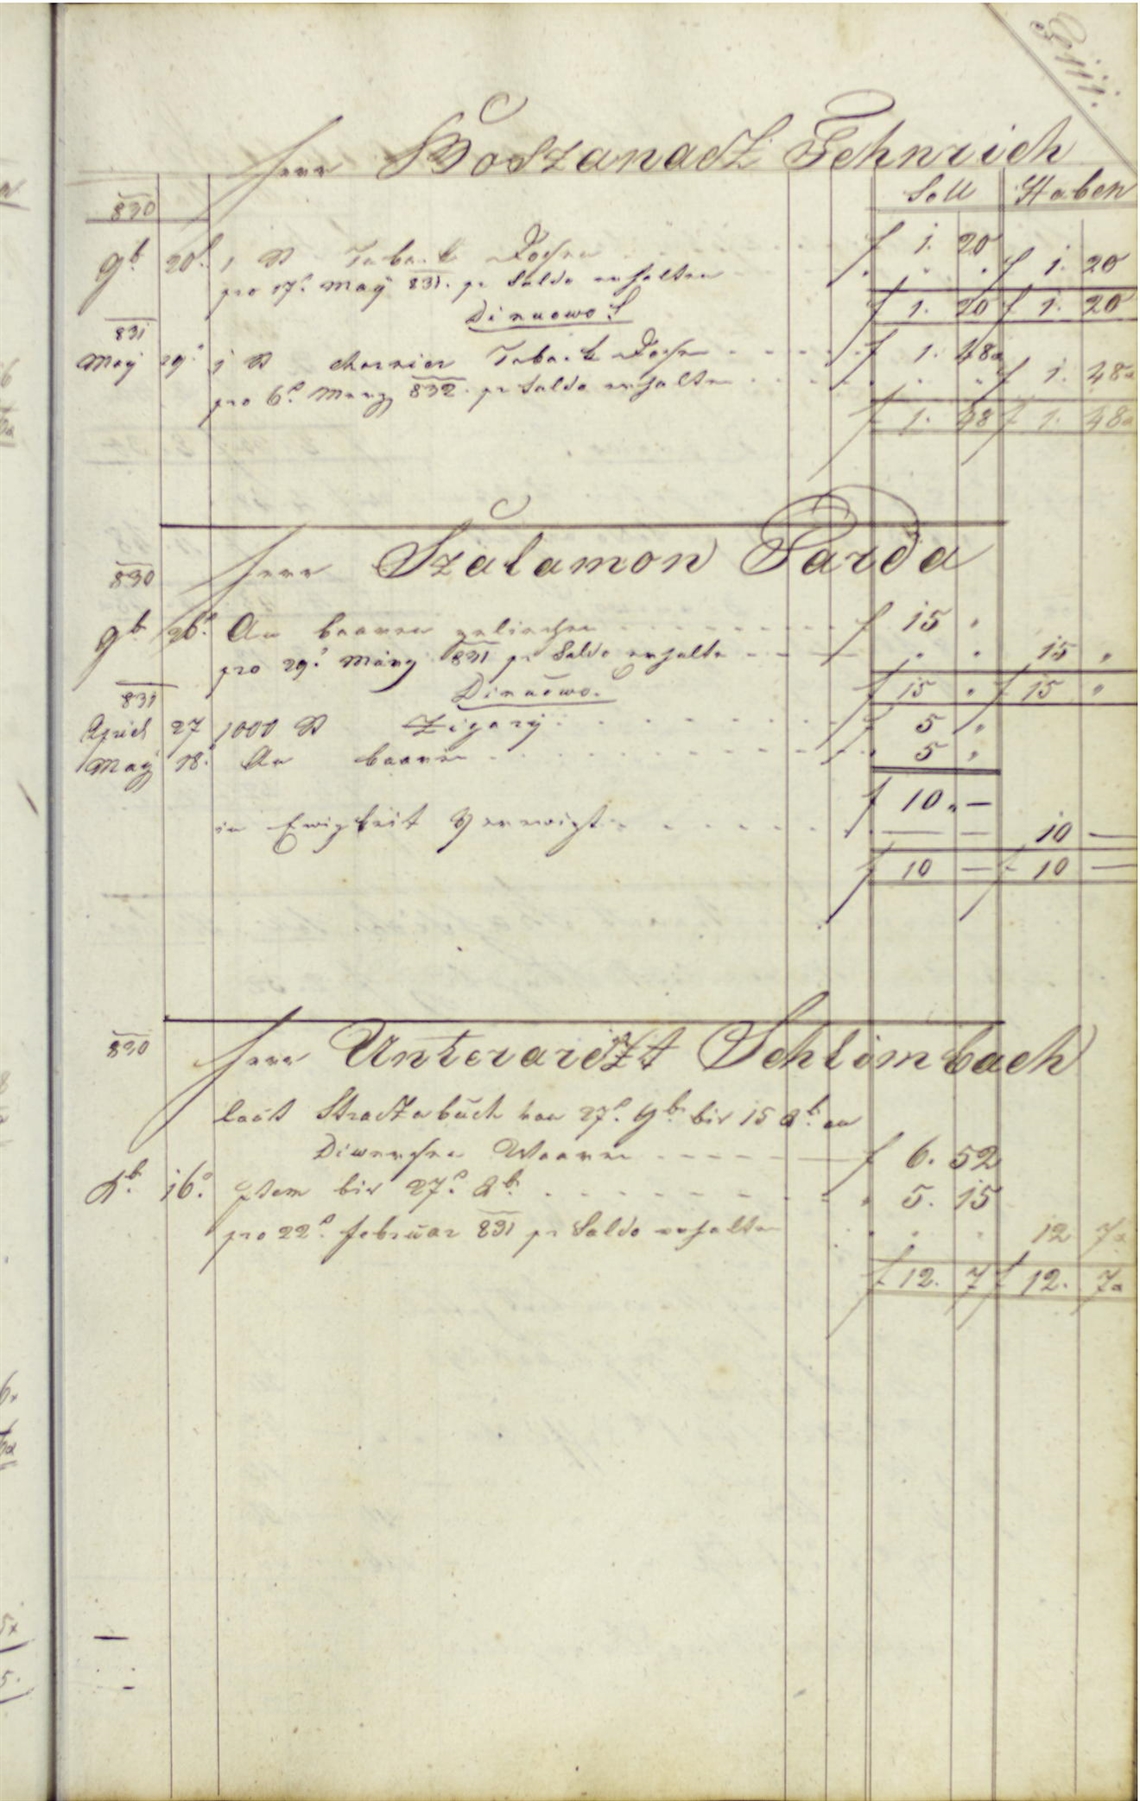 Herr Boszanacz Fehnrich
Soll Haben
830
9b. 20. 1 St Taback Dosen f 1. 20
pro 17. May 831. pr Saldo erhalten f 1. 20
f 1. 20 f 1. 20
Dinuowo
831
May 29. 1 St Taback Dosen f 1. 48
pro 6. Merz 832. pr Saldo erhalten f 1. 48
f 1. 48 f 1. 48
830
Herr Szalamon Parda
9b 26. An baaren geliehen f 15
pro 29. März 831 pr Saldo erhalten 15
f 15 f 15
Dinuowo.
831
April 27 1000 St Zigary f 5
May 18. An baaren 5
f 10 —
in Ewigkeit Verewigt — — 10 —
f 10 — f 10 —
830
Herr Unterarczt Schlimbach
laut Straczabuch von 27. 9b. bis 15 Xb. an
Diwersen Waaren f 6. 52
Xb. 16. Item bis 27. Xb. 5. 15
pro 22. Februar 831 pr Saldo erhalten 12 7
f 12. 7 f 12. 7